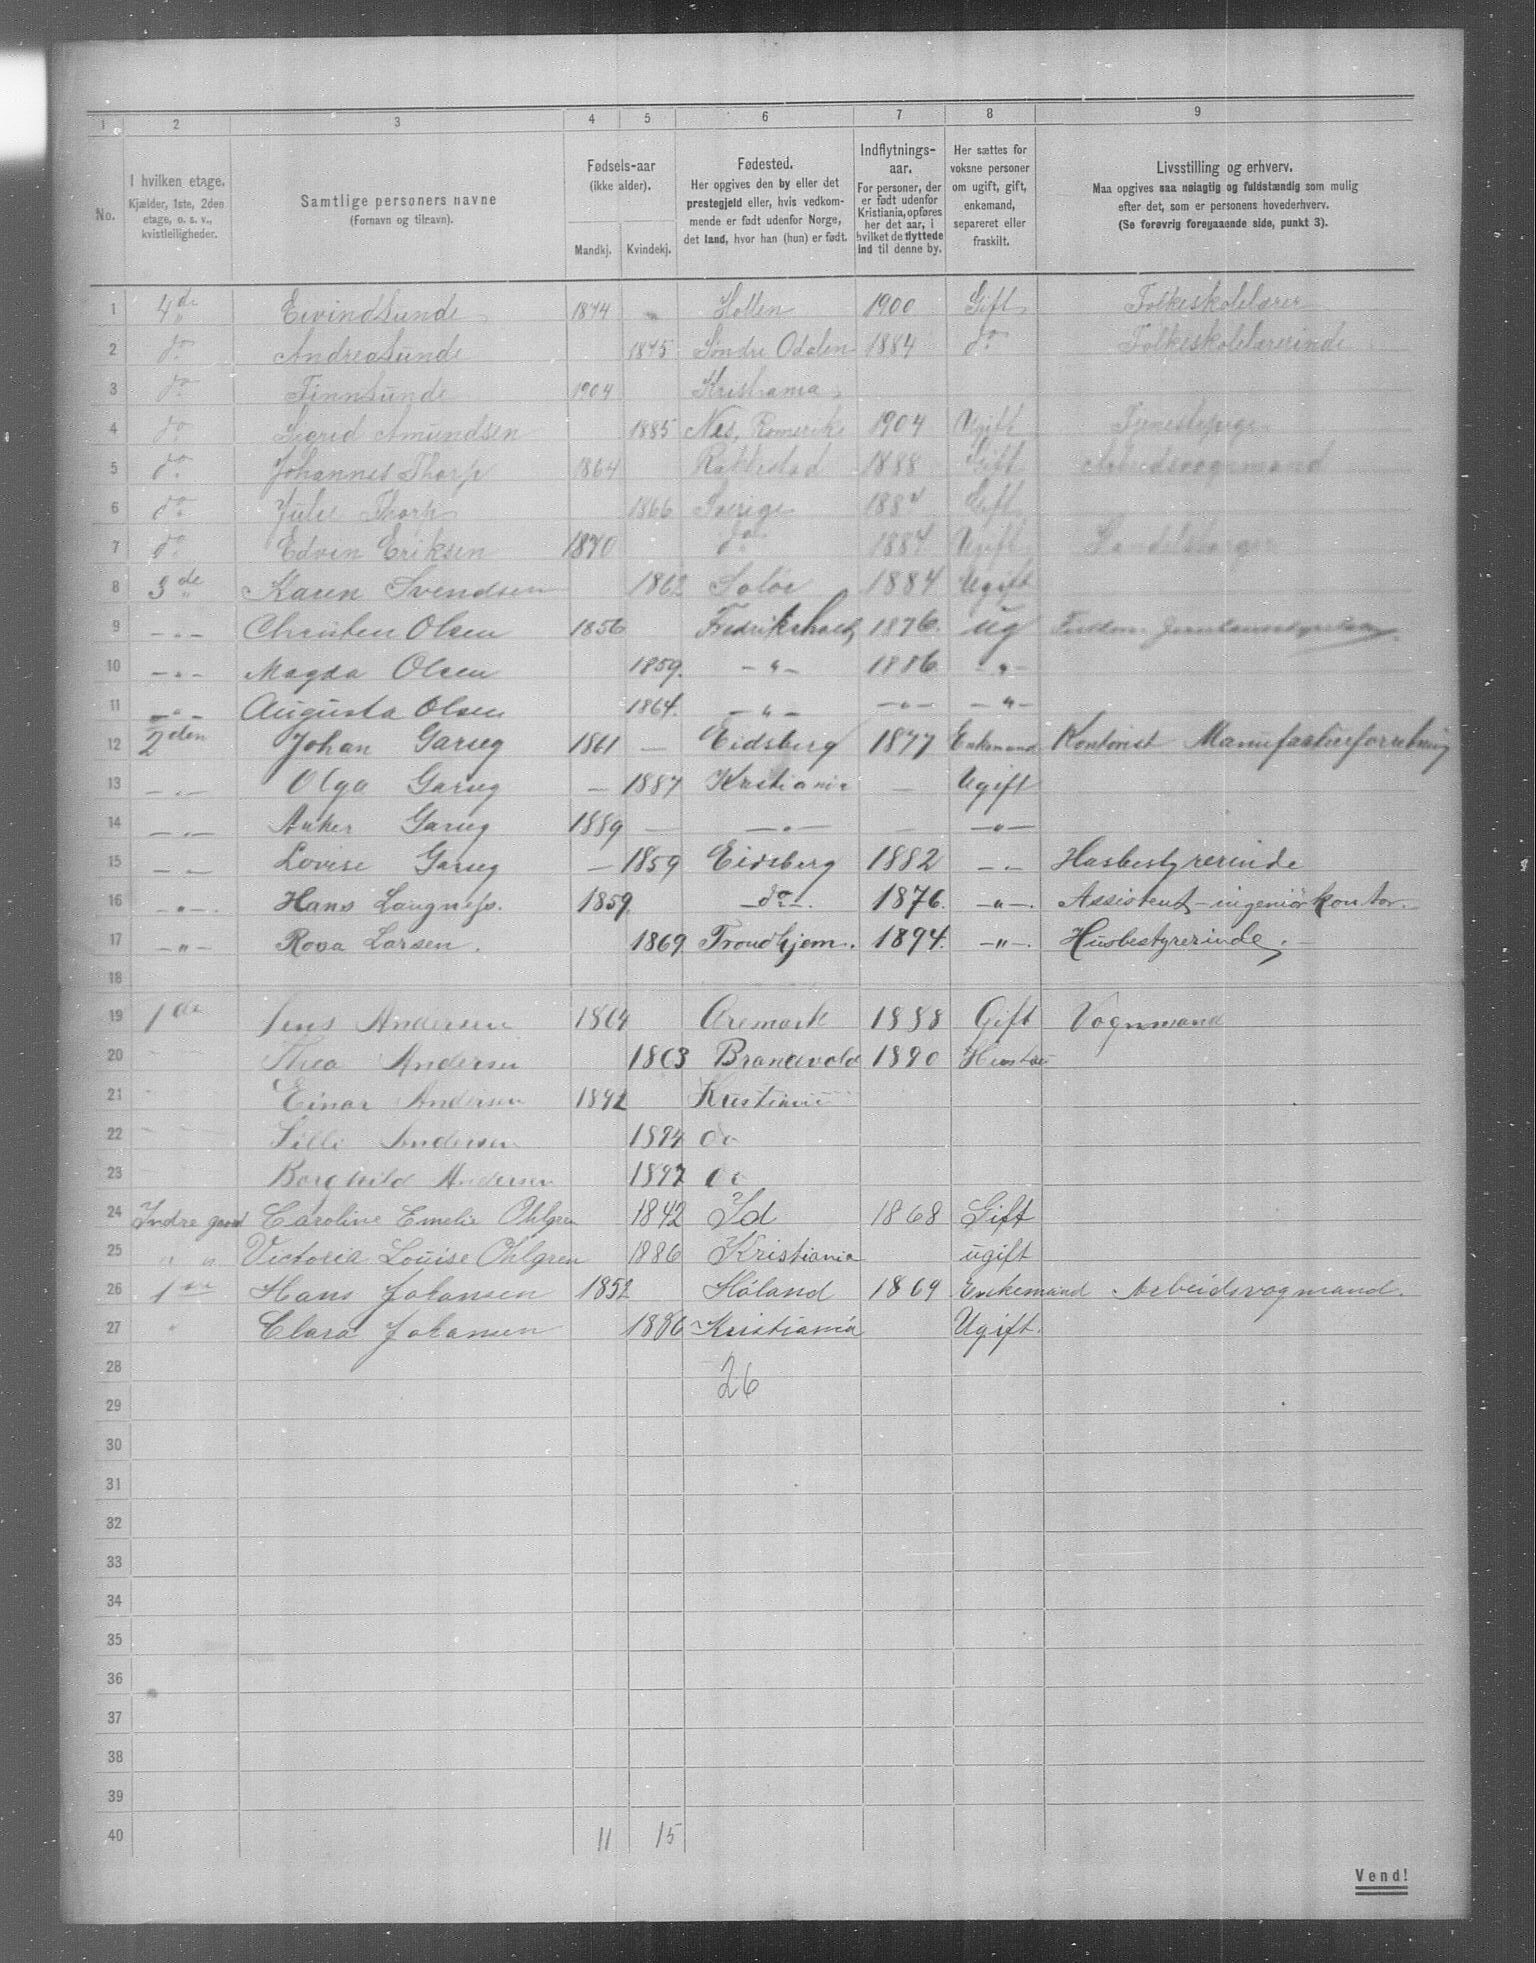 1 2 3 4 5 6 7 8 9
No. I hvilken etage. Kjælder, 1ste, 2den etage, o. s. v., kvistleiligheder. Samtlige personers navne (Fornavn og tilnavn). Fødsels-aar (ikke alder). Mandkj. Kvindekj. Fødested. Her opgives den by eller det prestegjeld eller, hvis vedkommende er født udenfor Norge, det land, hvor han (hun) er født. Indflytnings-aar. For personer, der er født udenfor Kristiania, opføres her det aar, i hvilket de flyttede ind til denne by. Her sættes for voksne personer om ugift, gift, enkemand, separeret eller fraskilt. Livsstilling og erhverv. Maa opgives saa nøiagtig og fuldstændig som mulig efter det, som er personens hovederhverv. (Se forøvrig foregaaende side, punkt 3).
1 4de Eivind Sunde 1874 " Hollen 1900 Gift Folkeskolelærer
2 do Andrea Sunde 1875 Søndre Odalen 1884 do Folkeskolelærerinde
3 do Finn Sunde 1904 Kristiania
4 do Sigrid Amundsen 1885 Nes, Romerike 1904 Ugift Tjenestepige
5 do Johannes Thorp 1864 Rakkestad 1888 Gift Arbeidsvognmand
6 do Julie Thorp 1866 Sverige Gift
7 do Edvin Eriksen 1870 do 1887 Ugift
8 3de Karen Svendsen 1862 Soløe 1884 Ugift
9 - " - Christen Olsen 1856 Fredrikshald 1876. ug
10 - " - Magda Olsen 1859. - " - 1886 - " -
11 - " - Augusta Olsen 1864. - " - - " - - " -
12 2den Johan Garseg 1861 — Eidsberg 1877 Enkemand Kontorist Manufakturforretning
13 - " - Olga Garseg — 1887 Kristiania — Ugift
14 - " - Anker Garseg 1889 — - " - — - " -
15 - " - Lovise Garseg — 1859 Eidsberg 1882 - " - Husbestyrerinde
16 - " - Hans Langness. 1859. - do - 1876. - " - Assistent - ingeniørkontor.
17 - " - Rosa Larsen. 1869 Trondhjem. 1894. - " - Husbestyrerinde.
18
19 1ste Jens Andersen 1864 Aremark 1888 Gift Vognmand
20 Thea Andersen 1863 Brandvold 1890 Hustru
21 Einar Andersen 1892 Kristiania
22 Lilli Andersen 1894 do
23 Borghild Andersen 1897 do
24 Indre gaard Caroline Emelie Ohlgren 1842 Id 1868 Gift
25 " " Victoria Louise Ohlgren 1886 Kristiania ugift
26 1ste Hans Johansen 1852 Høland 1869 Enkemand Arbeidsvogmand.
27 " Clara Johansen 1886 Kristiania Ugift.
28
26
29
30
31
32
33
34
35
36
37
38
39
40 11 15
Vend!